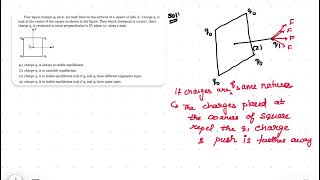 Four equal charges q₀ each, are kept fixed at the vertices of a square of side 'a'. Charge q₁ is
kept at the centre of the square as shown in the figure. Then which statement is correct (here
charge q₁ is restricted to move perpendicular to XY plane i.e. along z-axis)
(1) charge q₁ is always in stable equilibrium
(2) charge q₁ is in unstable equilibrium
(3) charge q₁ is stable equilibrium only if q₁ and q₀ have different opposite signs
(4) charge q₁ is in stable equilibrium only if q₁ and q₀ have same signs
Sol:
q₀
q₀
q₀
q₀
(2)
F
F
F
F
If charges are of same nature
The charges placed at
the corners of square
repel the q₁ charge
& push it further away